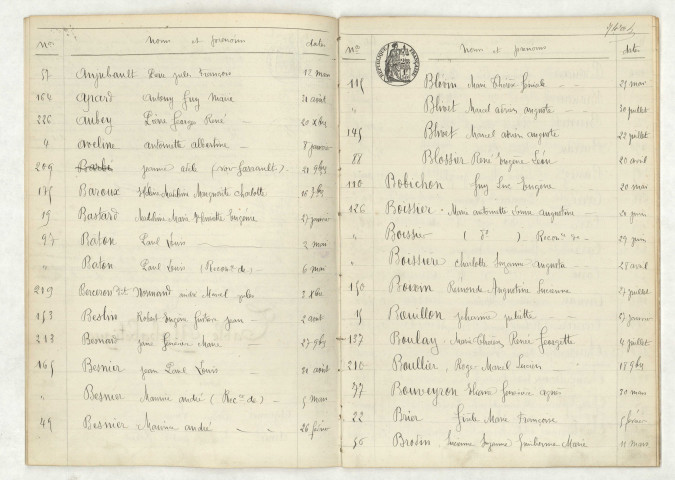 Nos Noms et prénoms dates
57 Anjubault Pierre Jules François 12 mars
164 Aprard Antony Guy Marie 31 août
226 Aubey Pierre Georges René 20 Xbre
4 Aveline Antoinette Albertine 8 janvier
209 Jeanne Adèle (voir Gassault) 21 9bre
175 Baroux Hélène Madeleine Marguerite Charlotte 16 7bre
19 Bastard Madeleine Marie Henriette Eugénie 27 janvier
97 Baton Paul Louis 2 mai
" Baton Paul Louis (Reconce de) 6 mai
219 Berceron dit Normand André Marcel Jules 3 Xbre
153 Beslin Robert Eugène Gustave Jean 2 août
213 Besnard Jane Geneviève Marie 27 9bre
165 Besnier Jean Paul Louis 31 août
" Besnier Maurice André (Recce de) 5 mars
49 Besnier Maurice André 26 février
RÉPUBLIQUE FRANÇAISE
Nos Noms et prénoms dates
115 Blévin Marie Thérèse 29 mai
" Blivet Marcel Adrien Auguste 30 juillet
145 Blivet Marcel Adrien Auguste 22 juillet
88 Blossier René Eugène Léon 20 avril
110 Bobichon Guy Luc Eugène 20 mai
126 Boissier Marie Antoinette Louise Augustine 20 juin
" Boissier (do) Reconce de 29 juin
Boissière Charlotte Suzanne Augusta 28 avril
150 Boivin Raimonde Augustine Suzanne 27 juillet
15 Bouillon Johanne Juliette 27 janvier
137 Boulay Marie Thérèse Renée Georgette 4 juillet
210 Boullier Roger Marcel Lucien 18 9bre
77 Bouveyron Hélène Geneviève Agnès 30 mars
22 Brier Gisèle Marie Françoise 5 février
56 Brosin Suzanne Suzanne Guillemine Marie 11 mars